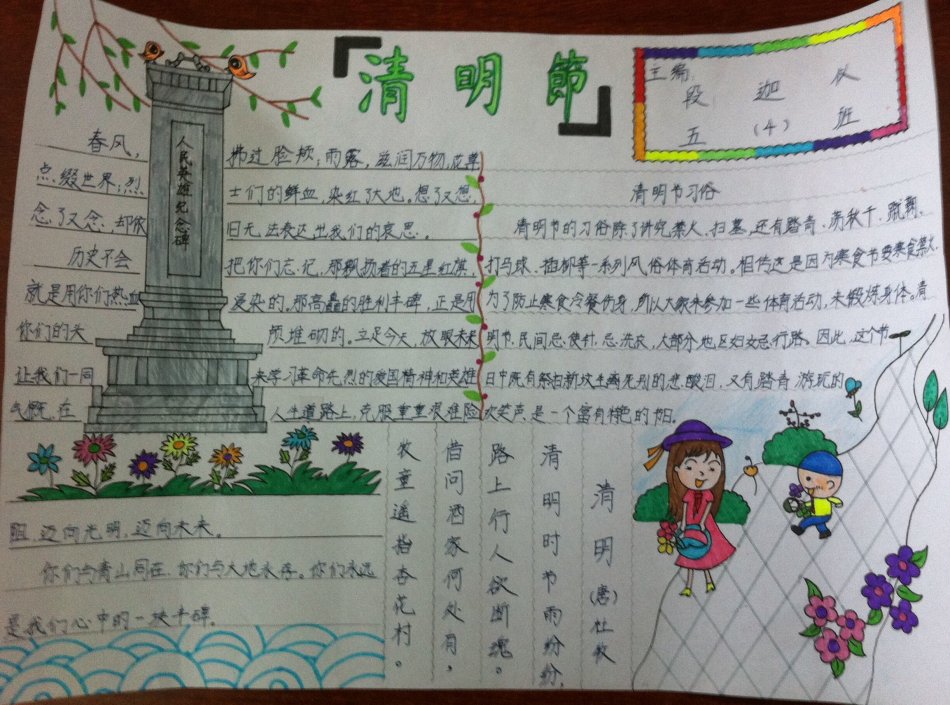 清明節
主编:
段迦以
五(4)班
人民英雄纪念碑
春风,拂过脸颊;雨露,滋润万物,花草
点缀世界;烈士们的鲜血,染红了大地。想了又想,
念了又念,却依旧无法表达出我们的哀思。
历史不会把你们忘记,那飘扬着的五星红旗,
就是用你们热血爱染的。那高矗的胜利丰碑,正是用
你们的头颅堆砌的。立足今天,放眼未来
让我们一同来学习革命先烈的爱国精神和英雄
气概,在人生道路上,克服重重艰难险
阻,迈向光明,迈向未来。
你们与青山同在,你们与大地永存。你们永远
是我们心中的一块丰碑。
清明节习俗
清明节的习俗除了讲究禁火、扫墓,还有踏青、荡秋千、蹴鞠、
打马球、插柳等一系列风俗体育活动。相传这是因为寒食节要寒食禁火,
为了防止寒食冷餐伤身,所以大家来参加一些体育活动,来锻炼身体。清
明节,民间忌使针,忌洗衣,大部分地区妇女忌行路。因此,这个节
日中既有祭扫新坟生离死别的悲酸泪,又有踏青游玩的
欢笑声,是一个富有特色的节日。
清明
(唐)杜牧
清明时节雨纷纷,
路上行人欲断魂。
借问酒家何处有,
牧童遥指杏花村。